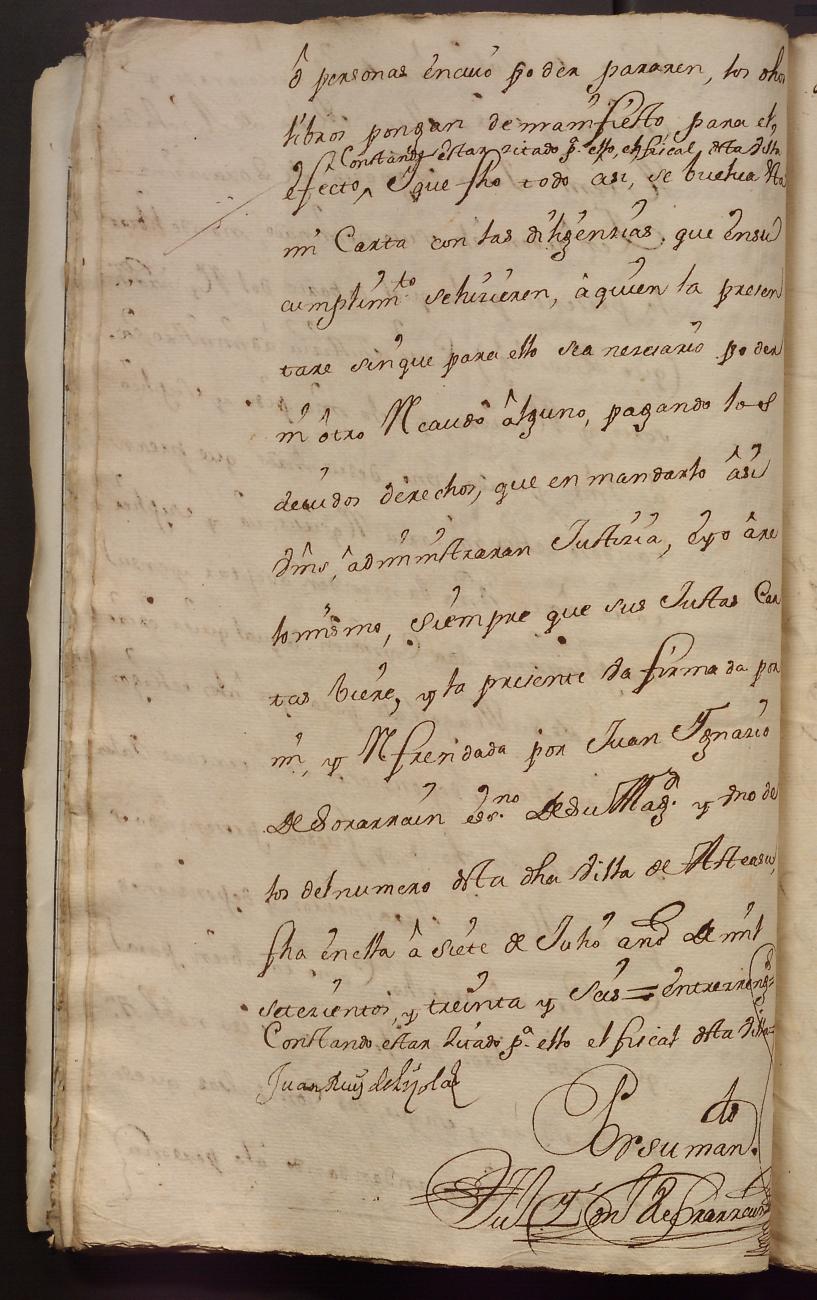 ô personas en cuio poder pararen, los dhos
libros pongan de manifiesto, para el,
Constando estar citado pª. ello, el fiscal, desta villa
efecto, ^ que fho todo asi, se buelua esta
mi Carta con las diligenzias, que en su
cumplimto se hizieren, â quien la presen
tare sin que para ello sea nezesario poder
ni ôtro Recaudo âlguno, pagando los
deuidos derechos, que en mandarlo âsi
Vms, âdministraran Justizia, e yo âre
lo mismo, siempre que sus Justas Car
tas biere, y la presente ba firmada por
mi, y Refrendada por Juan Ygnazio
de sorarrain esno. de su Magd. y vno de
los del numero desta dha Villa de Asteasu,
fha en ella â siete de Julio año de mil
setezientos, y treinta y Seis = entrerreng =
Constando estar zitado pª. ello el fiscal desta Villa =
Juan Ruiz de
Por su mando.